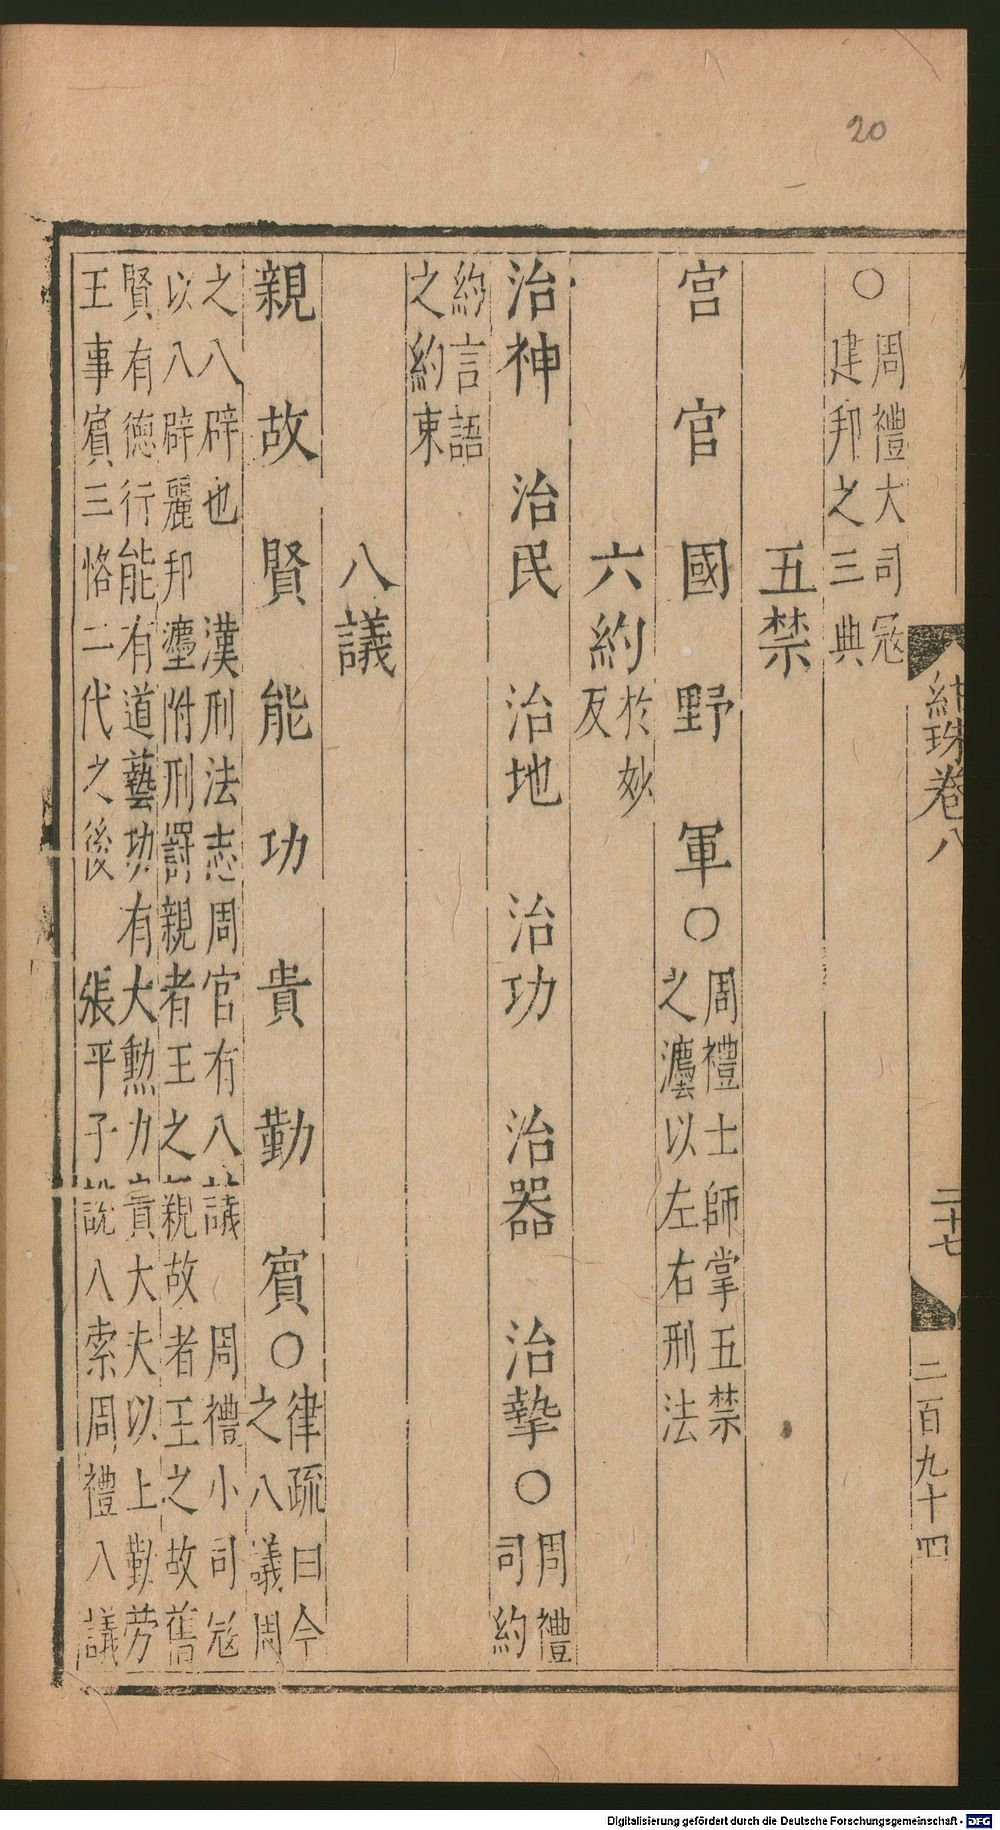 20
紺珠卷八
二十七
二百九十四
○周禮大司冦
建邦之三典
五禁
宫 官 國 野 軍○周禮士師掌五禁
之灋以左右刑法
六約於妙
反
治神 治民 治地 治功 治器 治摯○周禮
司約
約言語
之約束
八議
親 故 賢 能 功 貴 勤 賓○律疏曰今
之八議周
之八辟也 漢刑法志周官有八議 周禮小司冦
以八辟麗邦灋附刑罰親者王之親故者王之故舊
賢有德行能有道藝功有大勲力貴大夫以上勤勞
王事賓三恪二代之後 張平子說八索周禮八議
Digitalisierung gefördert durch die Deutsche Forschungsgemeinschaft - DFG